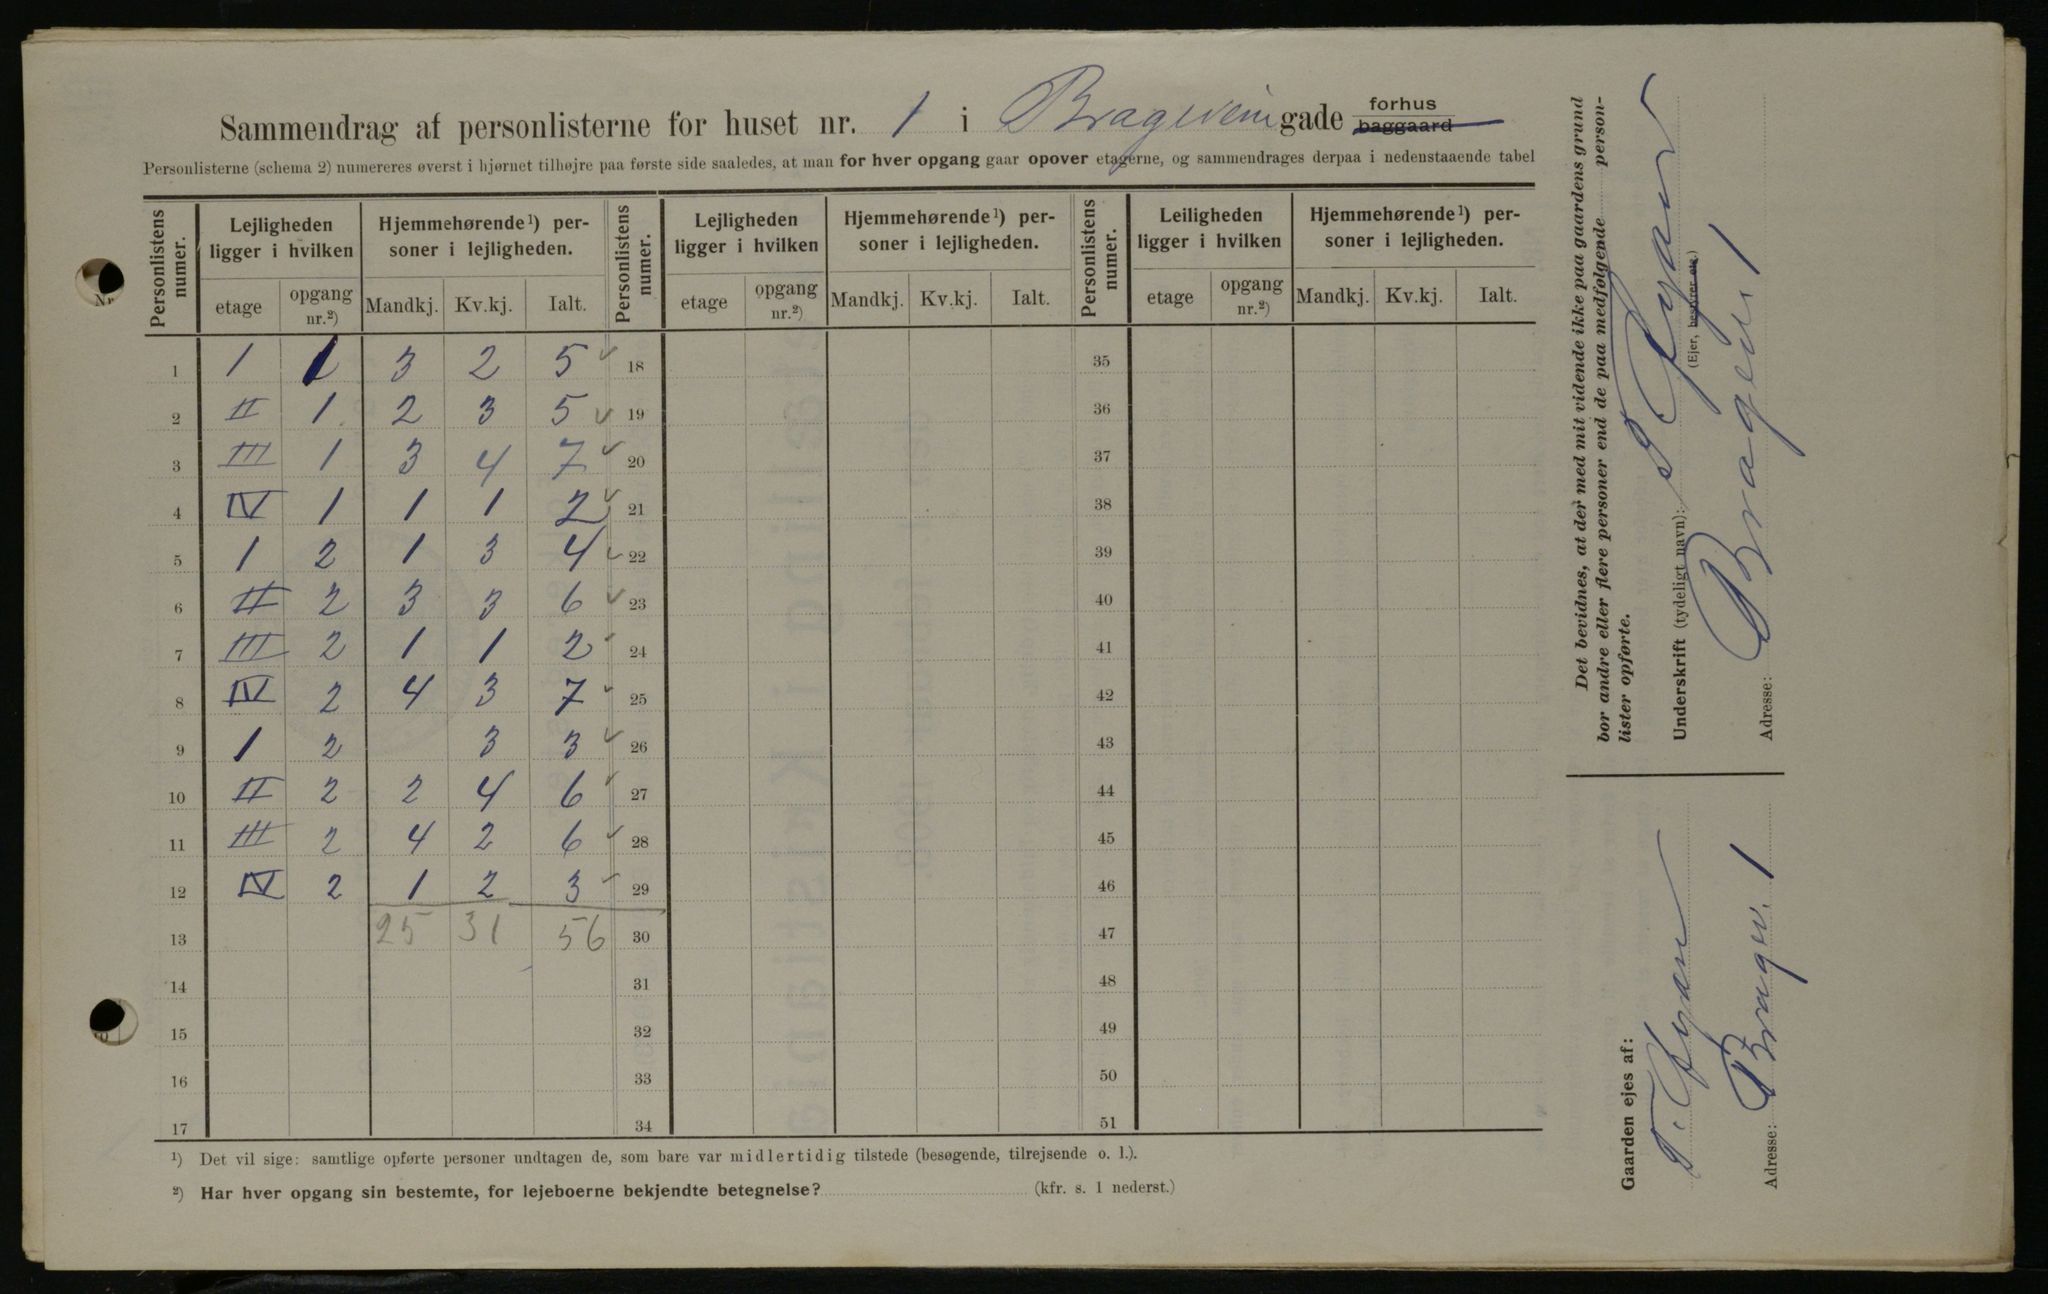 Sammendrag af personlisterne for huset nr. 1 i Brageveien gade forhus baggaard
Personlisterne (schema 2) numereres øverst i hjørnet tilhøjre paa første side saaledes, at man for hver opgang gaar opover etagerne, og sammendrages derpaa i nedenstaaende tabel
Personlistens numer. Lejligheden ligger i hvilken Hjemmehørende¹) personer i lejligheden. Personlistens numer. Lejligheden ligger i hvilken Hjemmehørende¹) personer i lejligheden. Personlistens numer. Leiligheden ligger i hvilken Hjemmehørende¹) personer i lejligheden.
etage opgang nr.²) Mandkj. Kv.kj. Ialt. etage opgang nr.²) Mandkj. Kv.kj. Ialt. etage opgang nr.²) Mandkj. Kv.kj. Ialt.
1 1 1 3 2 5 18 35
2 II 1 2 3 5 19 36
3 III 1 3 4 7 20 37
4 IV 1 1 1 2 21 38
5 1 2 1 3 4 22 39
6 II 2 3 3 6 23 40
7 III 2 1 1 2 24 41
8 IV 2 4 3 7 25 42
9 1 2 3 3 26 43
10 II 2 2 4 6 27 44
11 III 2 4 2 6 28 45
12 IV 2 1 2 3 29 46
13 25 31 56 30 47
14 31 48
15 32 49
16 33 50
17 34 51
¹) Det vil sige: samtlige opførte personer undtagen de, som bare var midlertidig tilstede (besøgende, tilrejsende o. l.).
²) Har hver opgang sin bestemte, for lejeboerne bekjendte betegnelse? (kfr. s. 1 nederst.)
Det bevidnes, at der med mit vidende ikke paa gaardens grund
bor andre eller flere personer end de paa medfølgende personlister opførte.
Underskrift (tydeligt navn):
(Ejer, bestyrer etc.)
Adresse: Bragevn 1
Gaarden ejes af:
Adresse: Bragev. 1